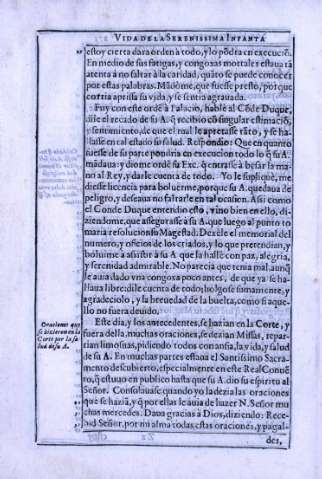 VIDA DE LA SERENISSIMA INFANTA
estoy cierta dara orden à todo, y lo põdrá en execuciõ.
En medio de sus fatigas, y congoxas mortales estaua tã
atenta à no faltar à la caridad, quãto se puede conocer
por estas palabras. Mãdòme, que fuesse presto, porque
corria aprissa su vida, y se sentia agrauada.
Fuy con este ordẽ à Palacio, hablé al Cõde Duque,
dile el recado de su A. q̃ recibiò cõ singular estimaciõ,
y sentimiento, de que el mal le apretasse tãto, y se ha-
llasse en tal estado su salud. Respondio: Que en quanto
fuesse de su parte pondria en execucion todo lo q̃ su A.
mãdaua: y diome ordẽ su Exc. q̃ entrasse à besar la ma-
no al Rey, y darle cuenta de todo. Yo le supliquè, me
diesse licencia para boluerme, porque su A. quedaua de
peligro, y deseaua no faltarle en tal ocasion. Assi como
el Conde Duque entendio esto, vino bien en ello, di-
ziendome, que assegurasse à su A. que luego al punto to
maria resolucion su Magestad. Dexéle el memorial del
numero, y oficios de los criados, y lo que pretendian, y
boluime à assistir à su A. que la hallè con paz, alegria,
y serenidad admirable. No parecia que tenia mal, aunq̃
le auia dado vna congoxa poco antes, de que ya se ha-
llaua libre: dile cuenta de todo; holgose sumamente; y
agradeciolo, y la breuedad de la buelta, como si aque-
llo no fuera deuido.
Oraciones que
se hizieron en la
Corte por la sa-
lud de su A.
Este dia, y los antecedentes, se hazian en la Corte, y
fuera della, muchas oraciones, se dezian Missas, repar-
tian limosnas, pidiendo todos con ansia, la vida, y salud
de su A. En muchas partes estaua el Santissimo Sacra-
mento descubierto, especialmente en este Real Conuẽ-
to, q̃ estuuo en publico hasta que su A. dio su espiritu al
Señor. Consolauase quando yo la dezia las oraciones
que se haziã, y q̃ por ellas le auia de hazer N. Señor mu
chas mercedes. Daua gracias à Dios, diziendo: Rece-
bid Señor, por mi alma todas estas oraciones, y pagal-
des,